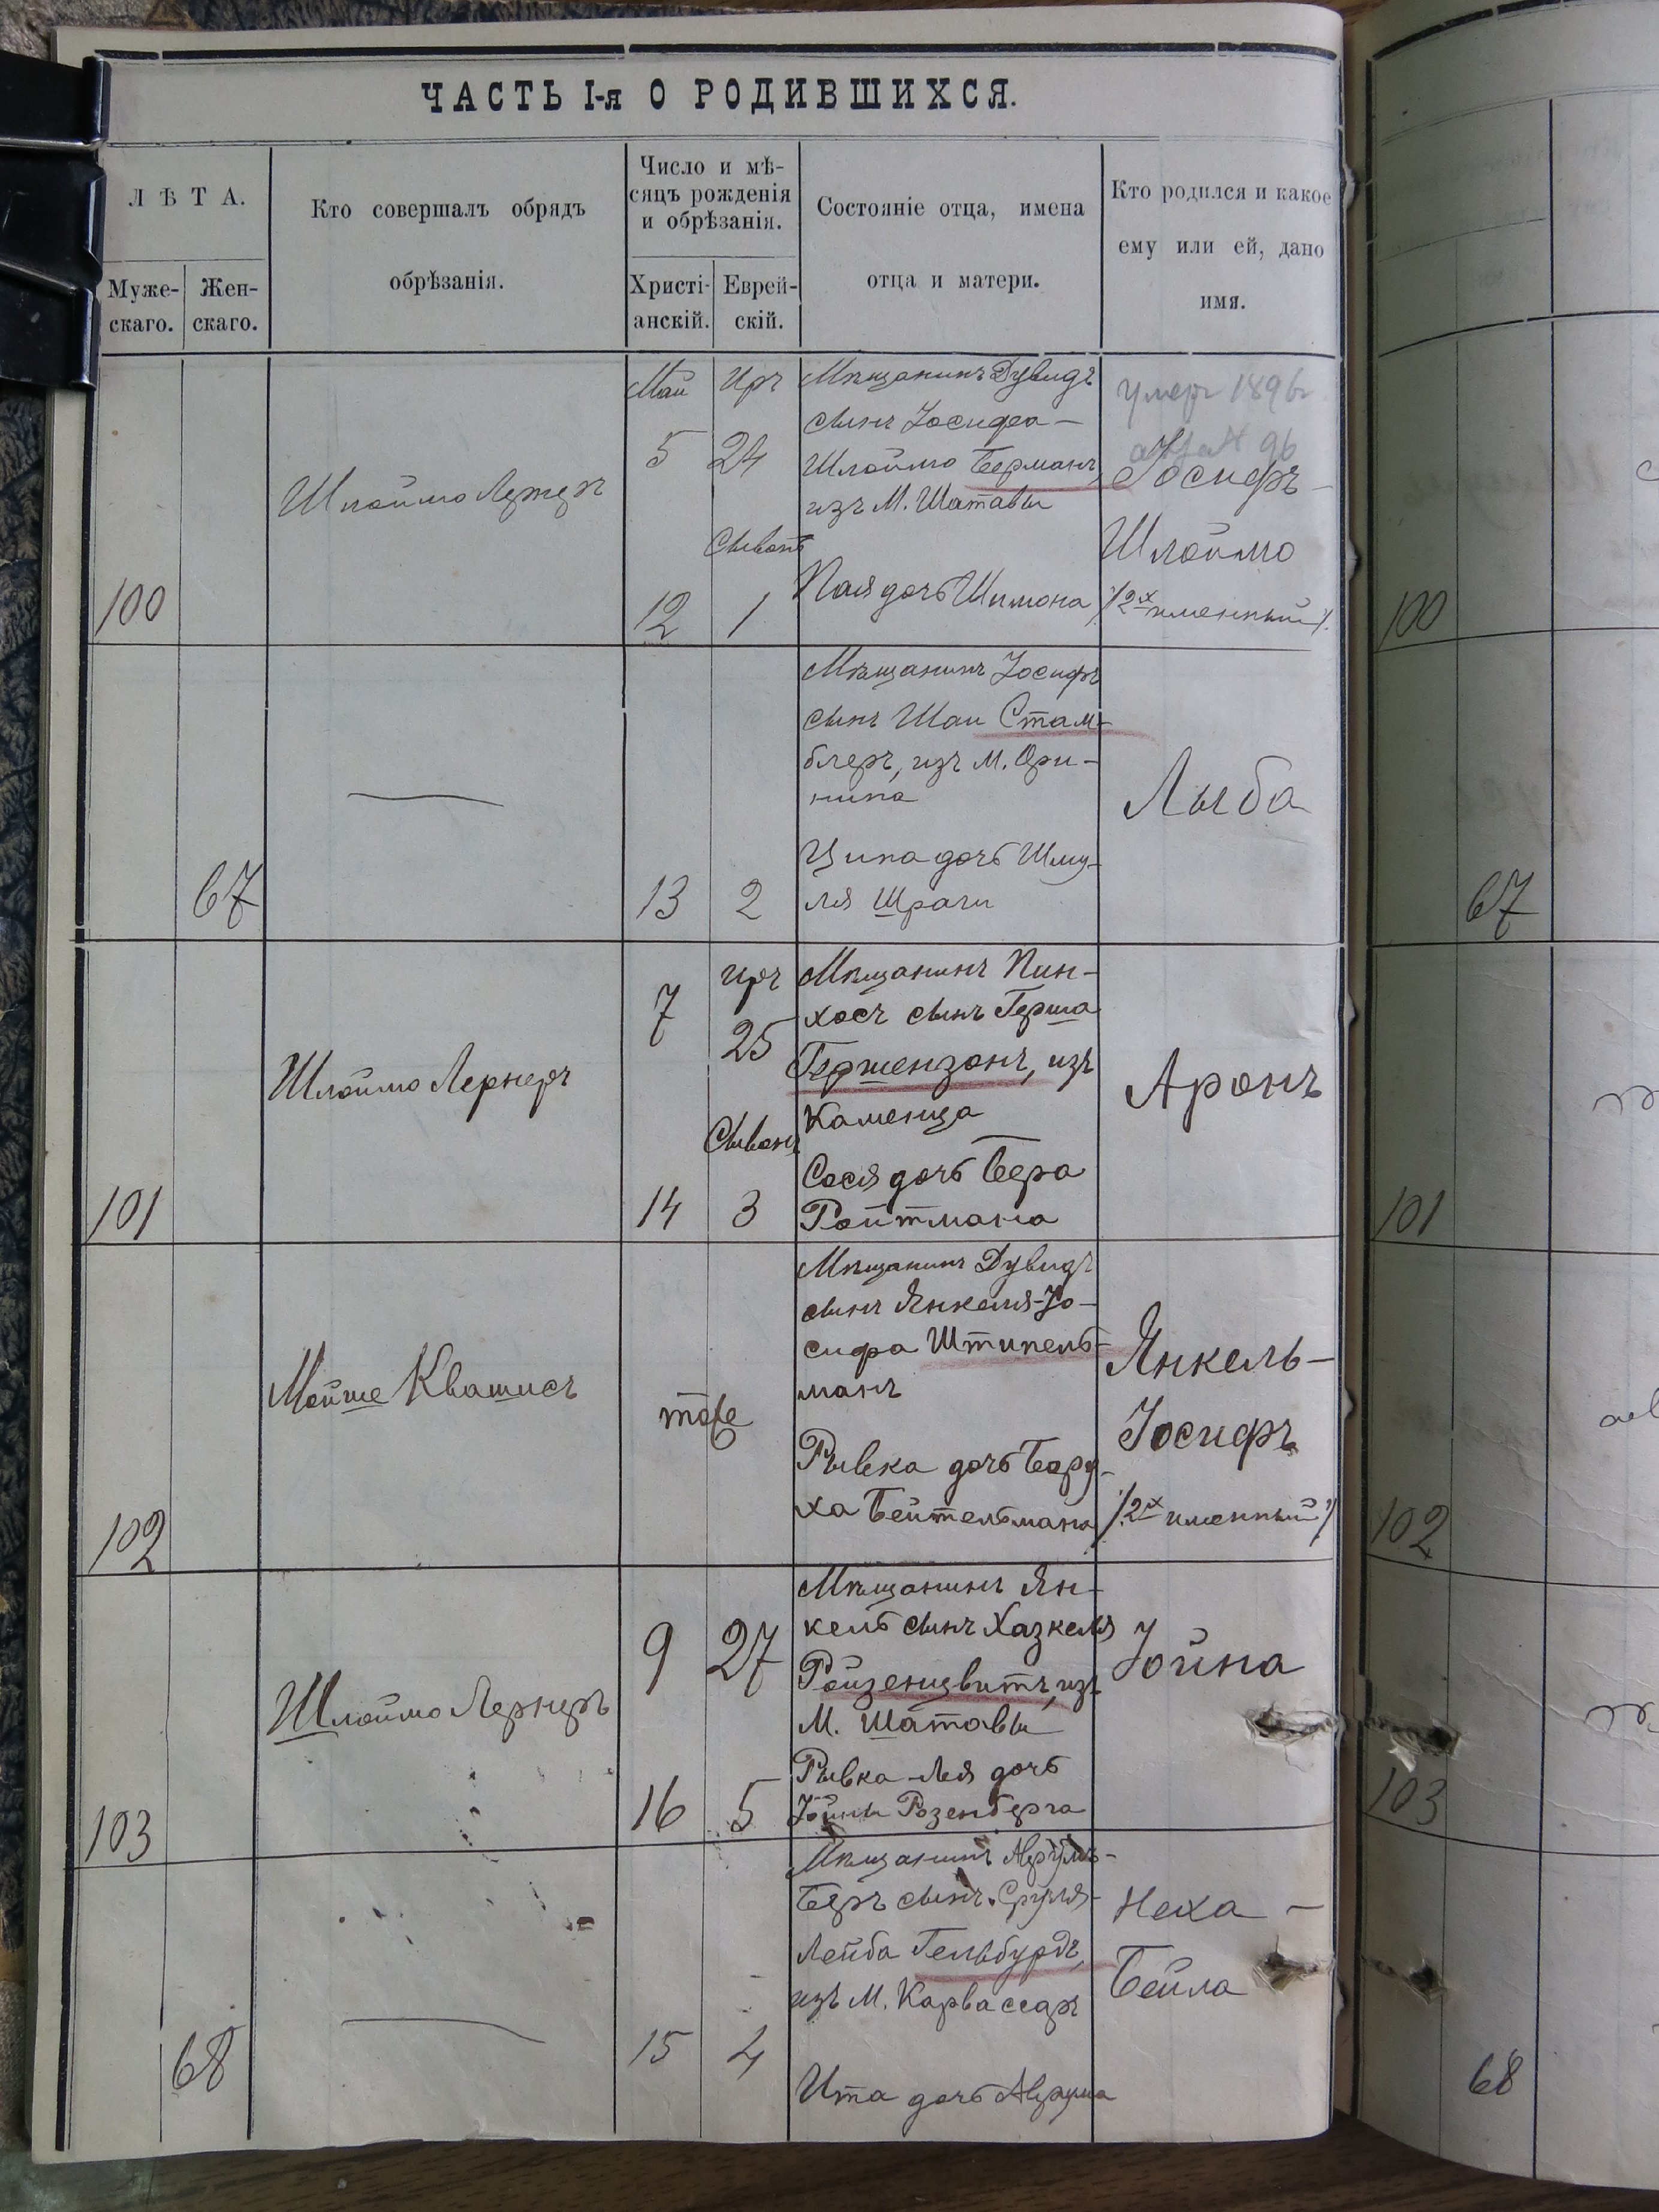 ЧАСТЬ I-я О РОДИВШИХСЯ.
ЛѢТА.
Муже-
скаго.
Жен-
скаго.
Кто совершалъ обрядъ
обрѣзанія.
Число и мѣ-
сяцъ рожденія
и обрѣзанія.
Христі-
анскій.
Еврей-
скій.
Состояніе отца, имена
отца и матери.
Кто родился и какое
ему или ей, дано
имя.
100
Шлоймо Лернеръ
Май
5
12
Иръ
24
Сыванъ
1
Мѣщанинъ Дувидъ
сынъ Іосифа-
Шлоймо Берманъ,
изъ М. Шатавы
дочь Шимона
умеръ 1896г
96
Іосифъ-
Шлоймо
/2х именный/
67
13
2
Мѣщанинъ Іосифъ
сынъ Шаи Стам-
блеръ, изъ М. Ори-
нина
Ципа дочь Шму-
ля Шраги
Лыба
101
Шлоймо Лернеръ
7
14
иръ
25
Сыванъ
3
Мѣщанинъ Пин-
хосъ сынъ Герша
Гершензонъ, изъ
Каменца
Сося дочь Бера
Ройтмана
Аронъ
102
Мойше Квашисъ
тоже
Мѣщанинъ Дувидъ
сынъ Янкеля-Іо-
сифа Штипель-
манъ
Рывка дочь Бору-
ха Бейтельмана
Янкель-
Іосифъ
/2х именный/
103
Шлоймо Лернеръ
9
16
27
5
Мѣщанинъ Ян-
кель сынъ Хазкеля
Ройзенцвитъ, изъ
М. Шатавы
Рывка-Лея дочь
Іойны Розенберга
Іойна
68
15
4
Мѣщанинъ Аврумъ-
Беръ сынъ Сруля-
Лейба Гельбурдъ,
изъ М. Карвасеръ
Ита дочь Аврума
Неха-
Бейла
100
67
101
102
103
68